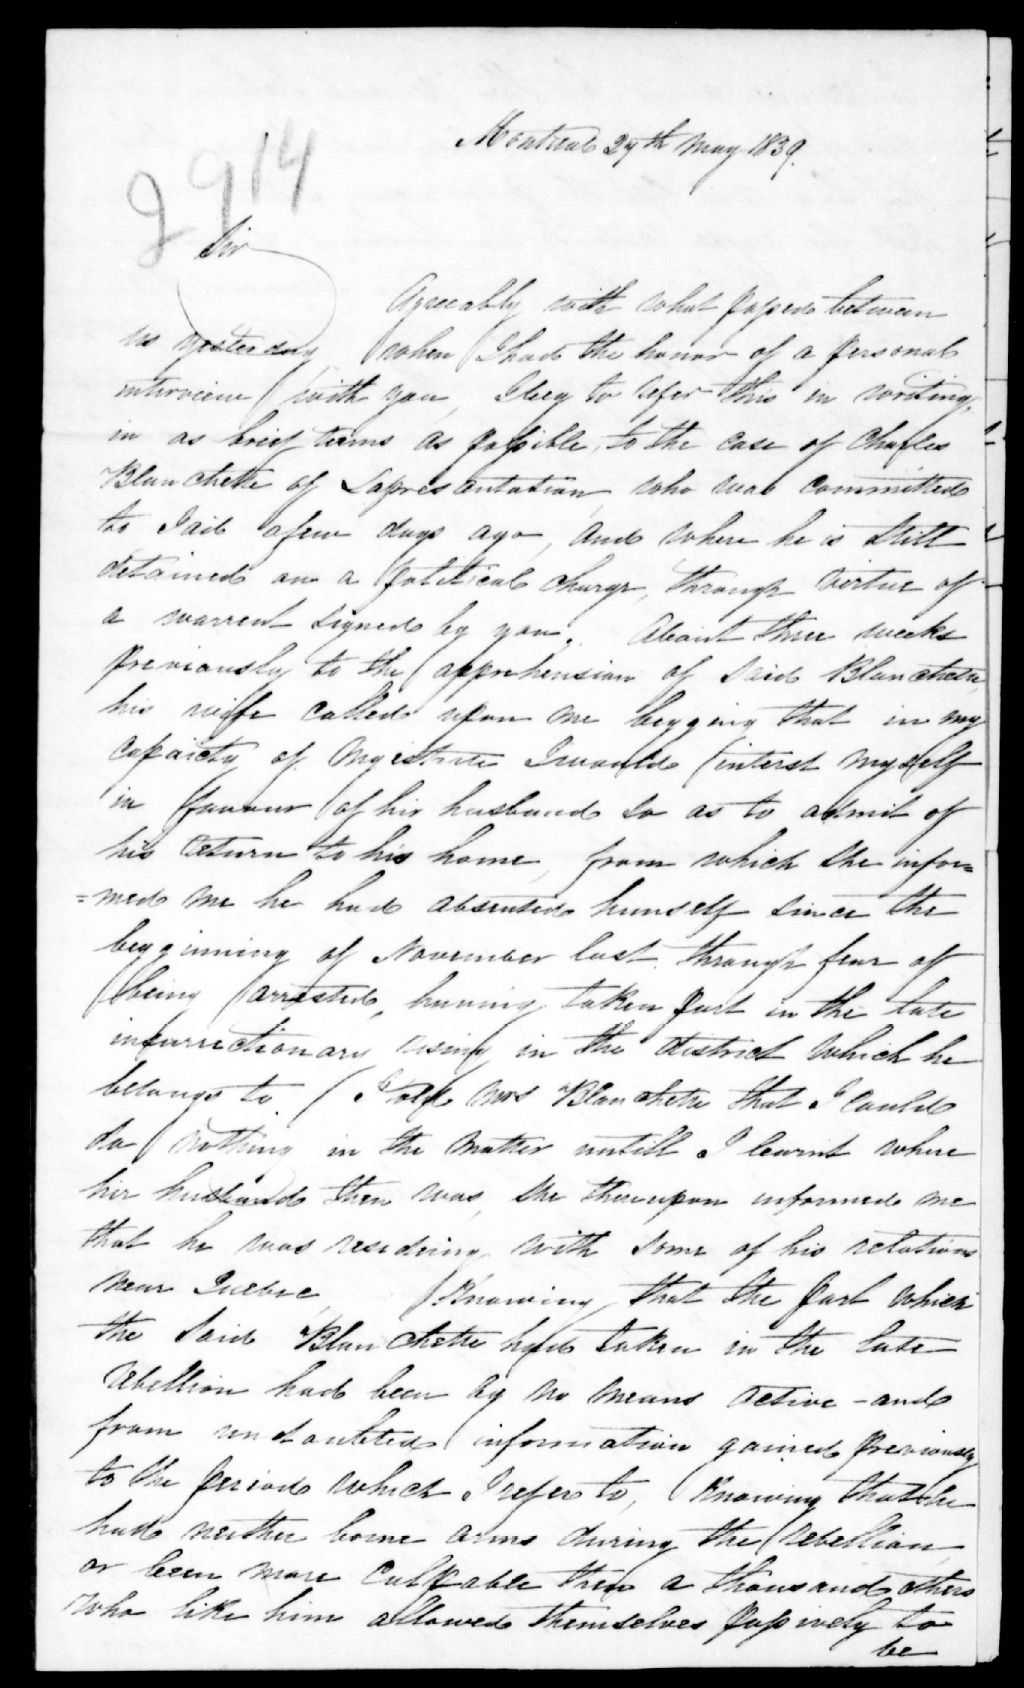 Montreal 27th May 1839.
2914
Sir
Agreeably with what passed between
us yesterday, when I had the honor of a personal
interview with you, I beg to refer this in writing,
in as brief terms as possible, to the case of Charles
Blanchette of Lapresentation, who was committed
to Jail a few days ago, and where he is still
detained on a political charge, through virtue of
a warrent signed by you. About three weeks
previously to the apprehension of said Blanchette,
his wife called upon me begging that in my
capaicty of Magistrate I would interst myself
in favour of her husband so as to admit of
his return to his home, from which she infor=
=med me he had absented himself since the
begginning of November last through fear of
being arrested, having taken part in the late
insurrectionary rising in the district which he
belongs to. I told Mrs Blanchette that I could
do nothing in the matter untill I learnt where
her husband then was, she thereupon informed me
that he was residing with some of his relations
near Quebec. Knowing that the part which
the said Blanchette had taken in the late
rebellion had been by no means active - and
from undoubted information gained previously
to the period which I refer to, Knowing that he
had neither borne arms during the rebellion,
or been more culpable then a thousand others
who like him allowed themselves passively to
be